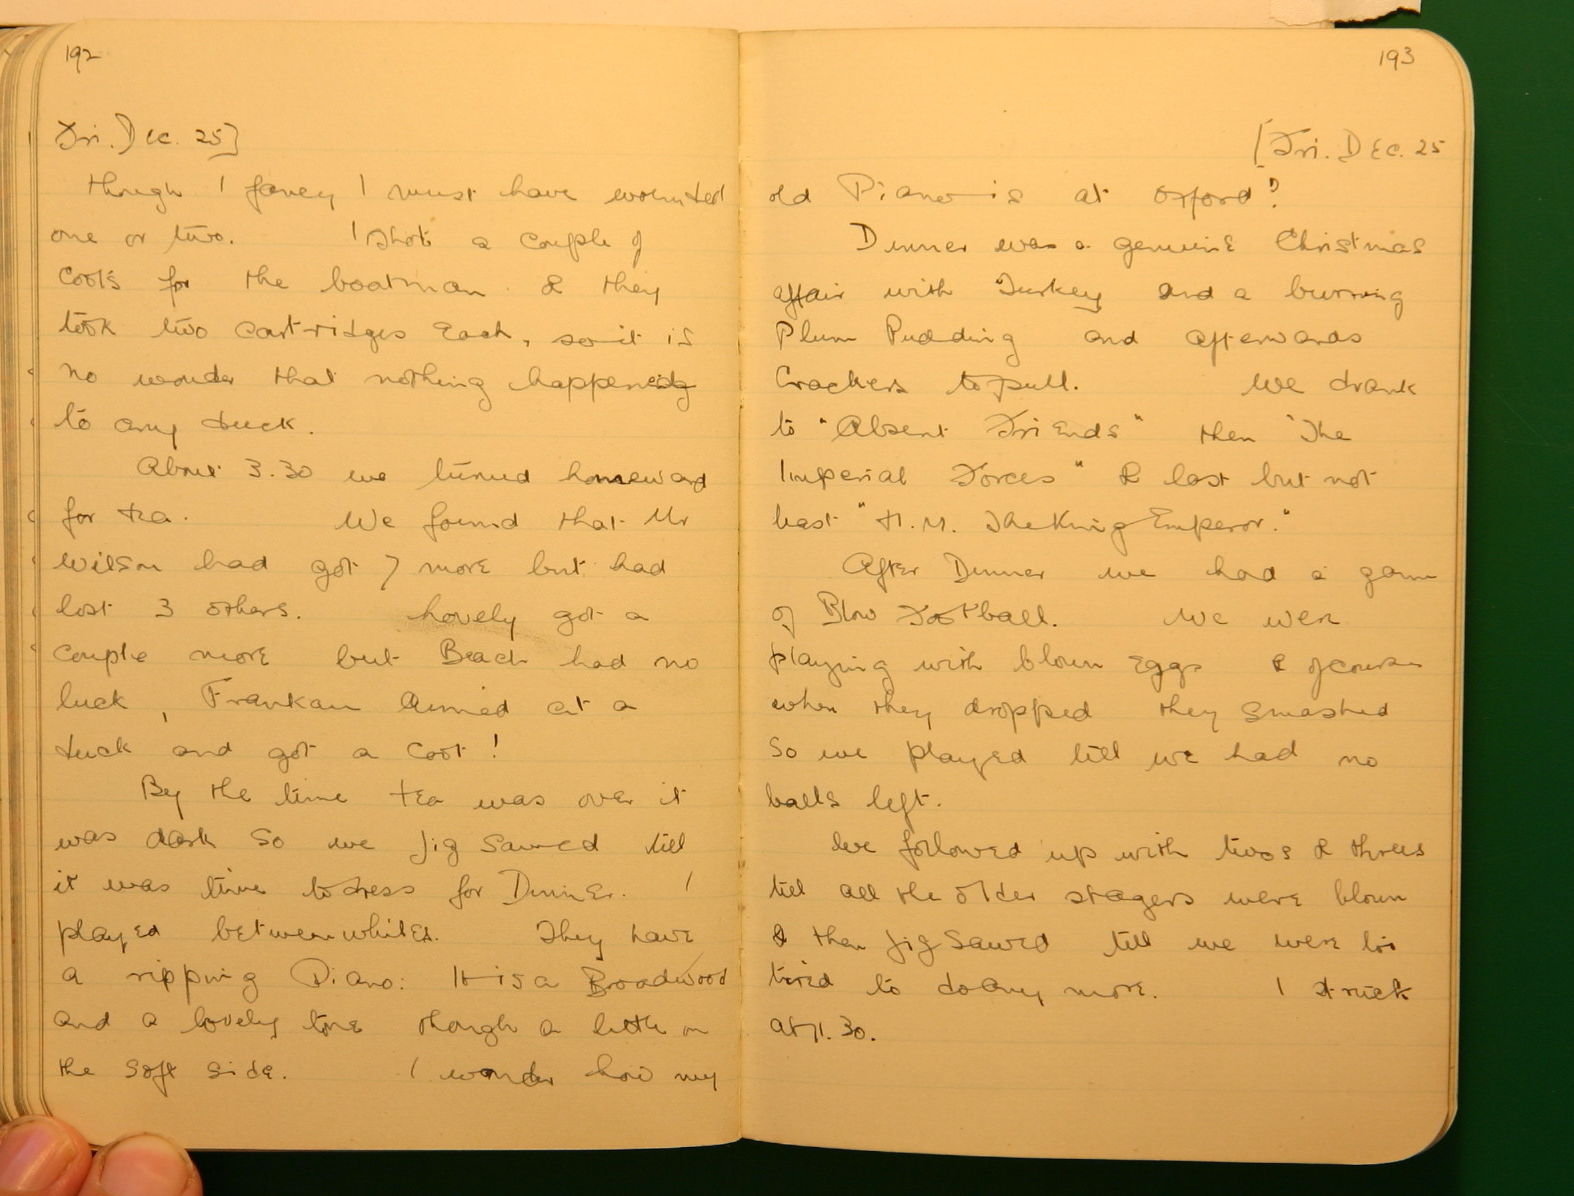 192
Fri. Dec. 25]
though I fancy I must have wounded
one or two. I shot a couple of
coots for the boatman & they
took two cartridges each, so it is
no wonder that nothing happened
to any duck.
About 3.30 we turned homeward
for tea. We found that Mr
Wilson had got 7 more but had
lost 3 others. Lovely got a
couple more but Beach had no
luck, Frankau aimed at a
duck and got a coot!
By the time tea was over it
was dark so we jig sawed till
it was time to dress for Dinner. I
played betweenwhiles. They have
a ripping Piano: It is a Broadwood
and a lovely tone though a little on
the soft side. I wonder how my
193
[Fri. Dec. 25
old Piano is at Oxford?
Dinner was a genuine Christmas
affair with Turkey and a burning
Plum Pudding and afterwards
Crackers to pull. We drank
to "Absent Friends" then "The
Imperial Forces" & last but not
least "H.M. The King Emperor."
After Dinner we had a game
of Blow Football. We were
playing with blown eggs & of course
when they dropped they smashed
so we played till we had no
balls left.
We followed up with twos & threes
till all the older stagers were blown
& then jig sawed till we were too
tired to do any more. I struck
at 11.30.